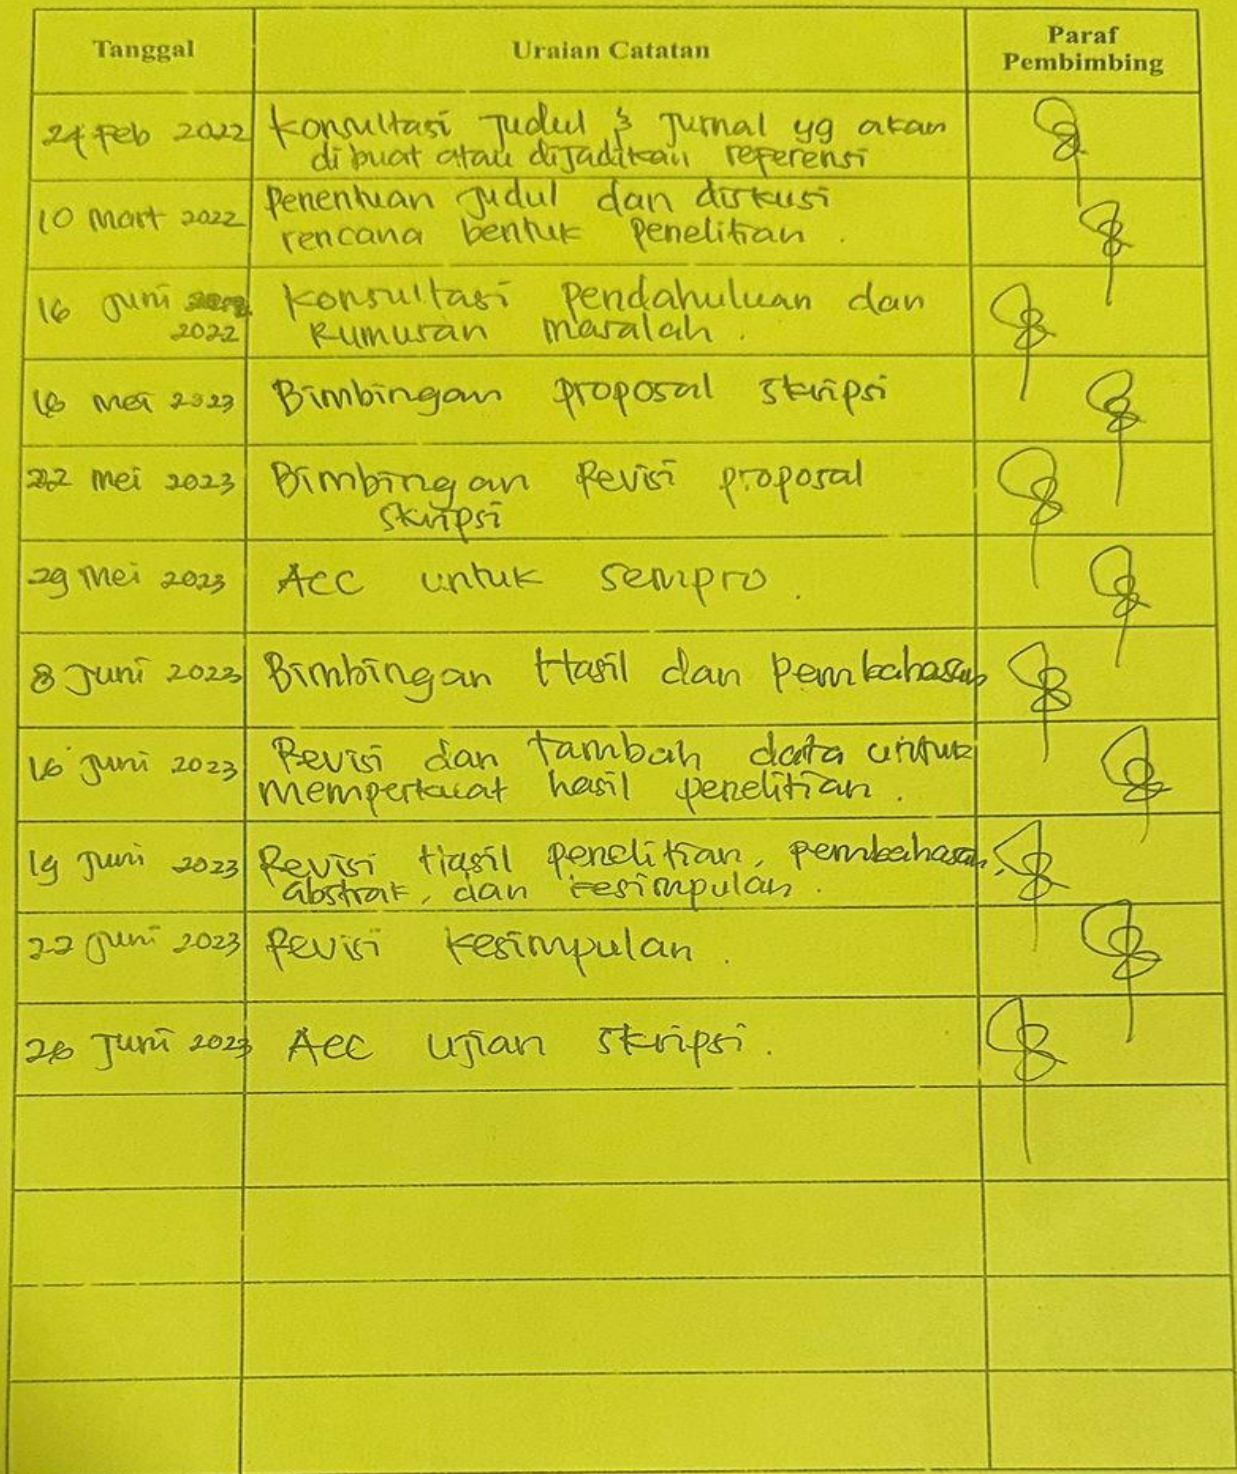 Tanggal
Uraian Catatan
Paraf
Pembimbing
24 Feb 2022
Konsultasi Judul & Jurnal yg akan
dibuat atau dijadikan referensi
10 Mart 2022
Penentuan Judul dan diskusi
rencana bentuk Penelitian.
16 Juni
2022
Konsultasi Pendahuluan dan
Rumusan masalah.
16 Mei 2023
Bimbingan Proposal Skripsi
22 Mei 2023
Bimbingan Revisi proposal
Skripsi
29 Mei 2023
Acc untuk sempro.
8 Juni 2023
Bimbingan Hasil dan Pembahasan
16 Juni 2023
Revisi dan tambah data untuk
memperkuat hasil penelitian.
19 Juni 2023
Revisi Hasil penelitian, pembahasan,
abstrak, dan kesimpulan.
22 Juni 2023
Revisi Kesimpulan.
26 Juni 2023
Acc Ujian Skripsi.